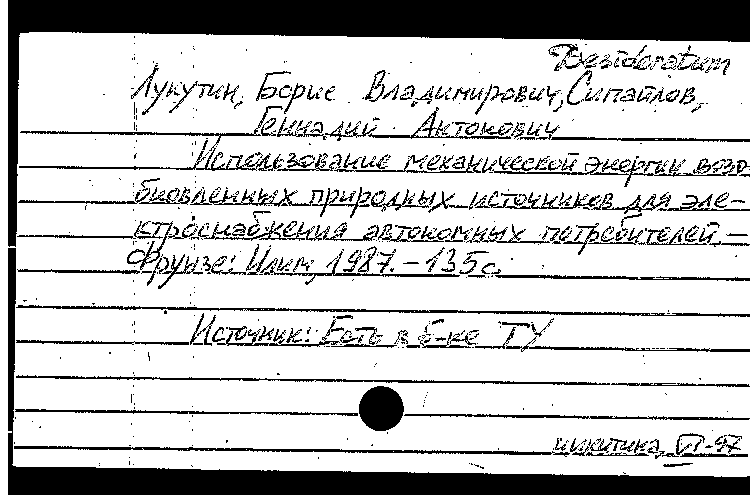 Desideratum
Лукутин, Борис Владимирович, Сипайлов,
Геннадий Антонович
Использование механической энергии возо-
бновленных природных источников для эле-
ктроснабжения автономных потребителей. –
Фрунзе: Илим, 1987. – 135 с.
Источник: Есть в б-ке ТУ
VI-97